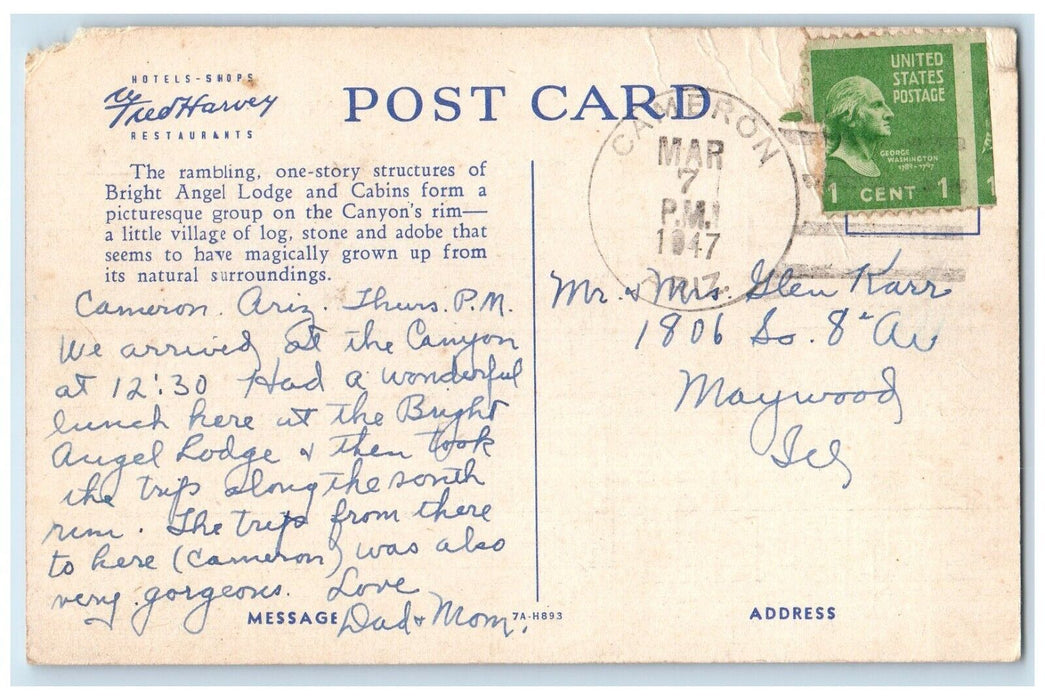 HOTELS-SHOPS
Fred Harvey
RESTAURANTS
POST CARD
The rambling, one-story structures of
Bright Angel Lodge and Cabins form a
picturesque group on the Canyon's rim—
a little village of log, stone and adobe that
seems to have magically grown up from
its natural surroundings.
Cameron. Ariz. Thurs. P.M.
We arrived at the Canyon
at 12:30 Had a wonderful
lunch here at the Bright
Angel Lodge & then took
the trip along the south
rim. The trip from there
to here (Cameron) was also
very gorgeous. Love
Dad & Mom.
MESSAGE
7A-H893
CAMERON
MAR
7
P.M.
1947
ARIZ.
UNITED
STATES
POSTAGE
GEORGE
WASHINGTON
1789-1797
1 CENT 1
1
Mr. & Mrs. Glen Karr
1806 So. 8th Av
Maywood
Ill
ADDRESS